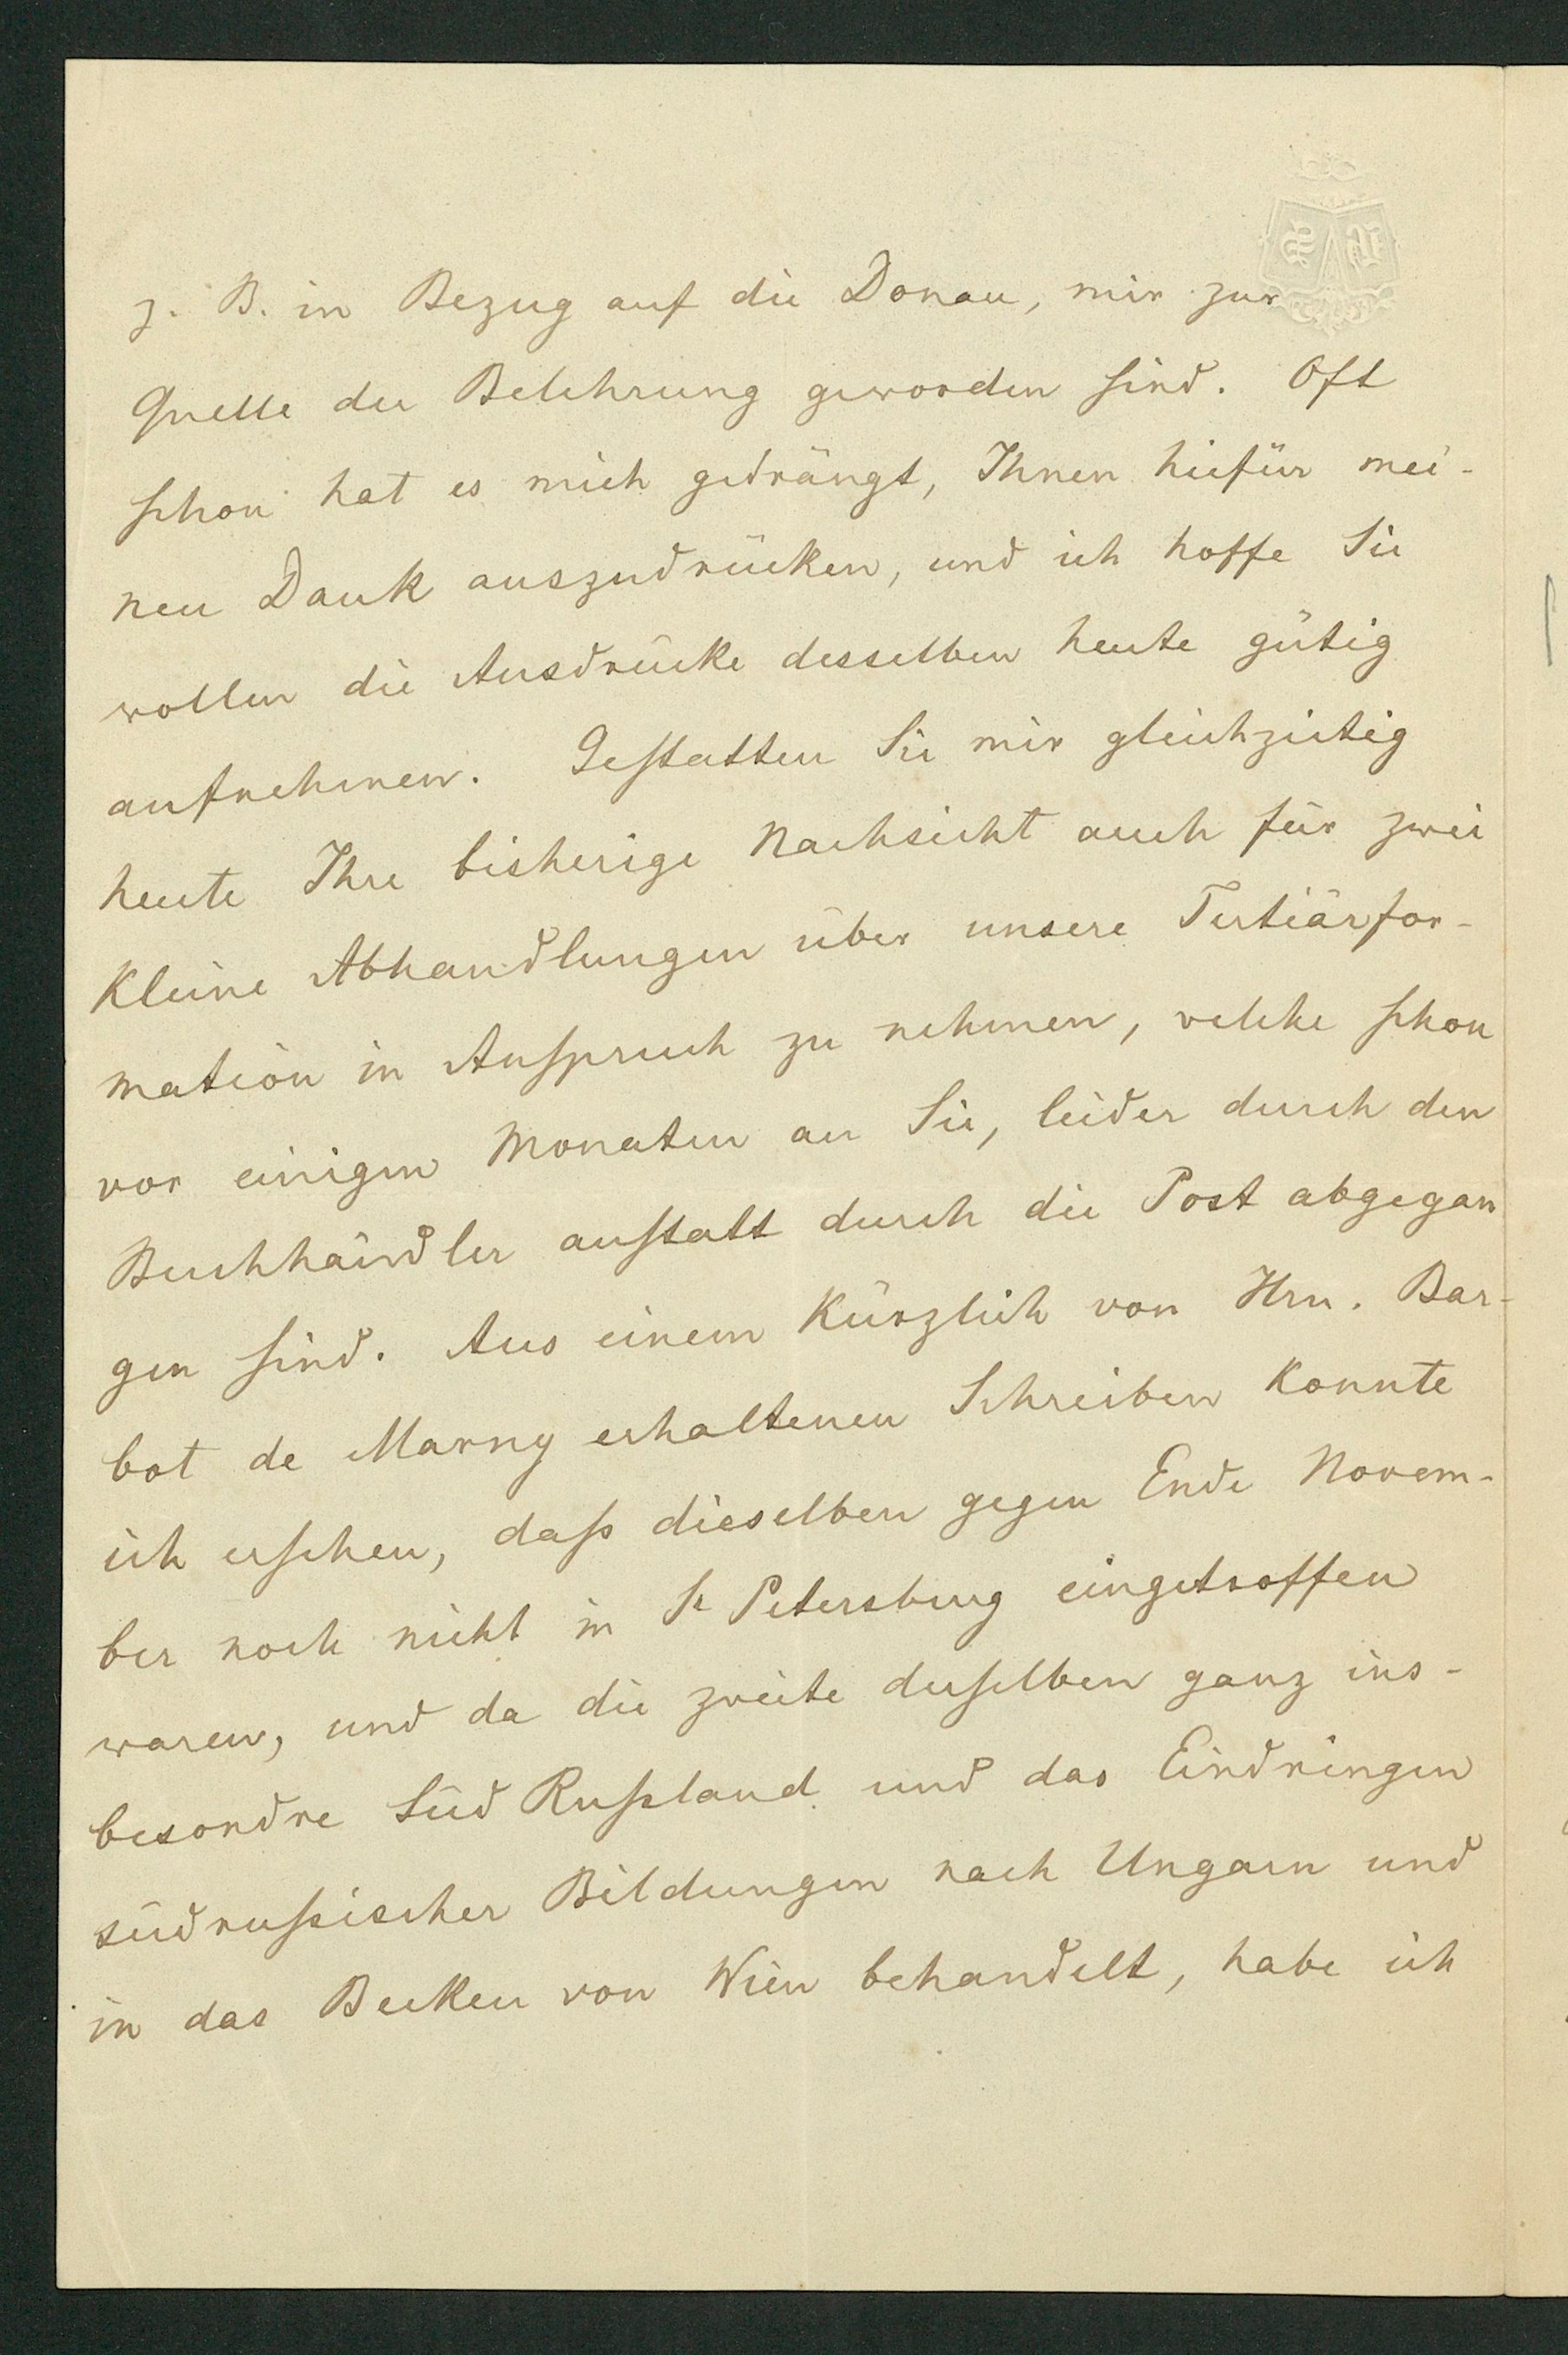 z. B. in Bezug auf die Donau, mir zur
Quelle der Belehrung geworden sind. Oft
schon hat es mich gedrängt, Ihnen hiefür mei-
nen Dank auszudrücken, und ich hoffe Sie
wollen die Ausdrücke desselben heute gütig
aufnehmen. Gestatten Sie mir gleichzeitig
heute Ihre bisherige Nachsicht auch für zwei
kleine Abhandlungen über unsere Tertiärfor-
mation in Anspruch zu nehmen, welche schon
vor einigen Monaten an Sie, leider durch den
Buchhändler anstatt durch die Post abgegan
gen sind. Aus einem kürzlich von Hrn. Bar-
bot de Marny erhaltenen Schreiben konnte
ich ersehen, daß dieselben gegen Ende Novem-
ber noch nicht in St Petersburg eingetroffen
waren, und da die zweite derselben ganz ins-
besondre Süd Rußland und das Eindringen
südrußischer Bildungen nach Ungarn und
in das Becken von Wien behandelt, habe ich